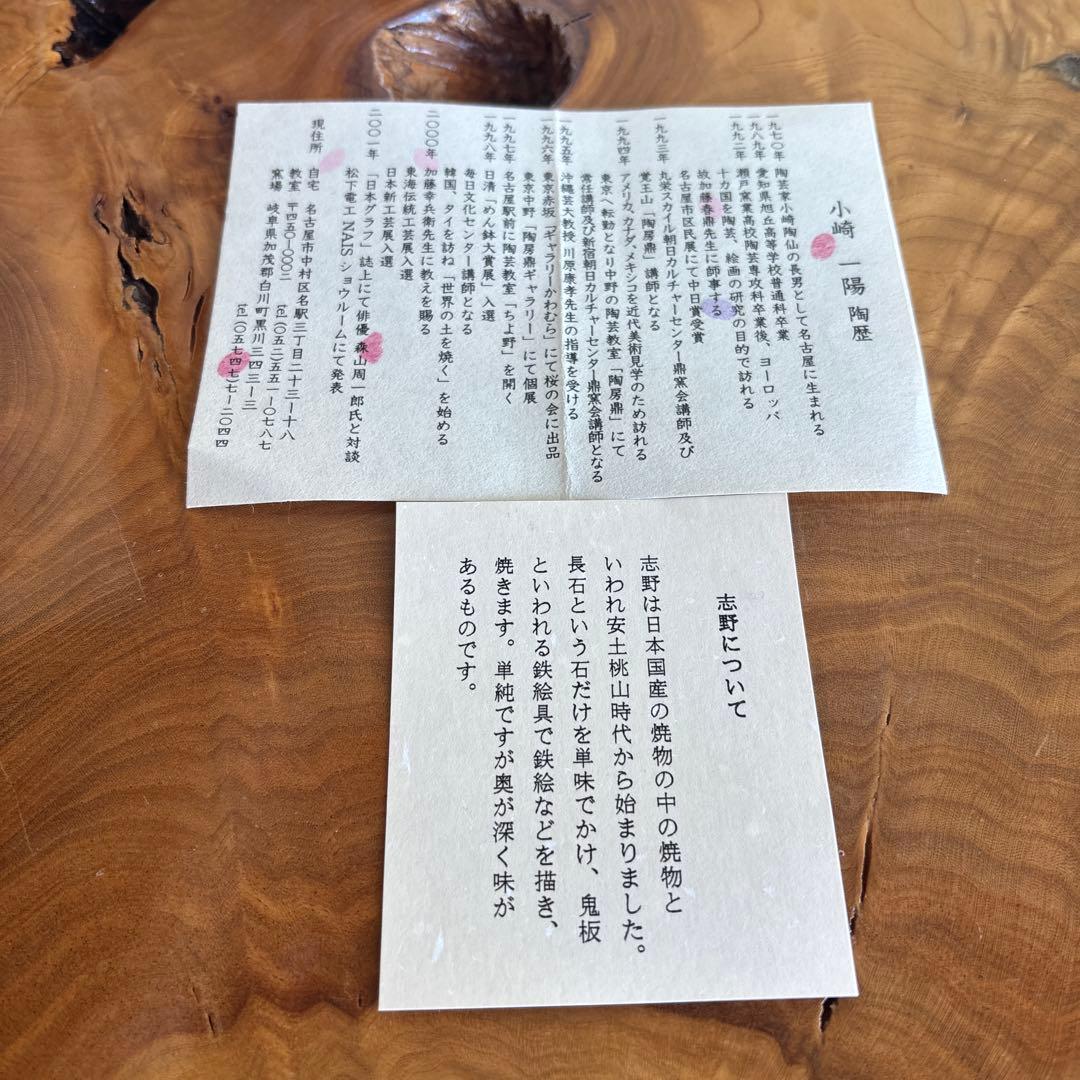 小崎 一陽 陶歴
一九七〇年 陶芸家小崎陶仙の長男として名古屋に生まれる
一九八九年 愛知県旭丘高等学校普通科卒業
一九九二年 瀬戸窯業高校陶芸専攻科卒業後、ヨーロッパ
十カ国を陶芸、絵画の研究の目的で訪れる
故加藤春鼎先生に師事する
名古屋市区民展にて中日賞受賞
一九九三年 丸栄スカイル朝日カルチャーセンター鼎窯会講師及び
覚王山「陶房鼎」講師となる
一九九四年 アメリカ、カナダ、メキシコを近代美術見学のため訪れる
東京へ転勤となり中野の陶芸教室「陶房鼎」にて
常任講師及び新宿朝日カルチャーセンター鼎窯会講師となる
一九九五年 沖縄芸大教授 川原康孝先生の指導を受ける
一九九六年 東京赤坂「ギャラリーかわむら」にて桜の会に出品
東京中野「陶房鼎ギャラリー」にて個展
一九九七年 名古屋駅前に陶芸教室「ちよ野」を開く
一九九八年 日清「めん鉢大賞展」入選
毎日文化センター講師となる
韓国、タイを訪ね「世界の土を焼く」を始める
二〇〇〇年 加藤幸兵衛先生に教えを賜る
東海伝統工芸展入選
日本新工芸展入選
二〇〇一年 「日本グラフ」誌上にて俳優 森山周一郎氏と対談
松下電工NAISショウルームにて発表
現住所 自宅 名古屋市中村区名駅三丁目二十三ー十八
教室 〒四五〇ー〇〇〇二 tel(〇五二)五五一ー〇七八七
窯場 岐阜県加茂郡白川町黒川三四三ー三
tel(〇五七四七)七ー二〇四四
志野について
志野は日本国産の焼物の中の焼物と
いわれ安土桃山時代から始まりました。
長石という石だけを単味でかけ、鬼板
といわれる鉄絵具で鉄絵などを描き、
焼きます。単純ですが奥が深く味が
あるものです。